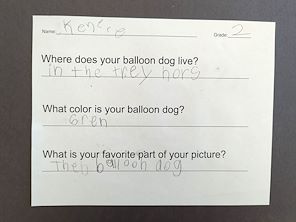 Name: Kenzee Grade: 2
Where does your balloon dog live?
in the trey hors
What color is your balloon dog?
Gren
What is your favorite part of your picture?
The balloon dog